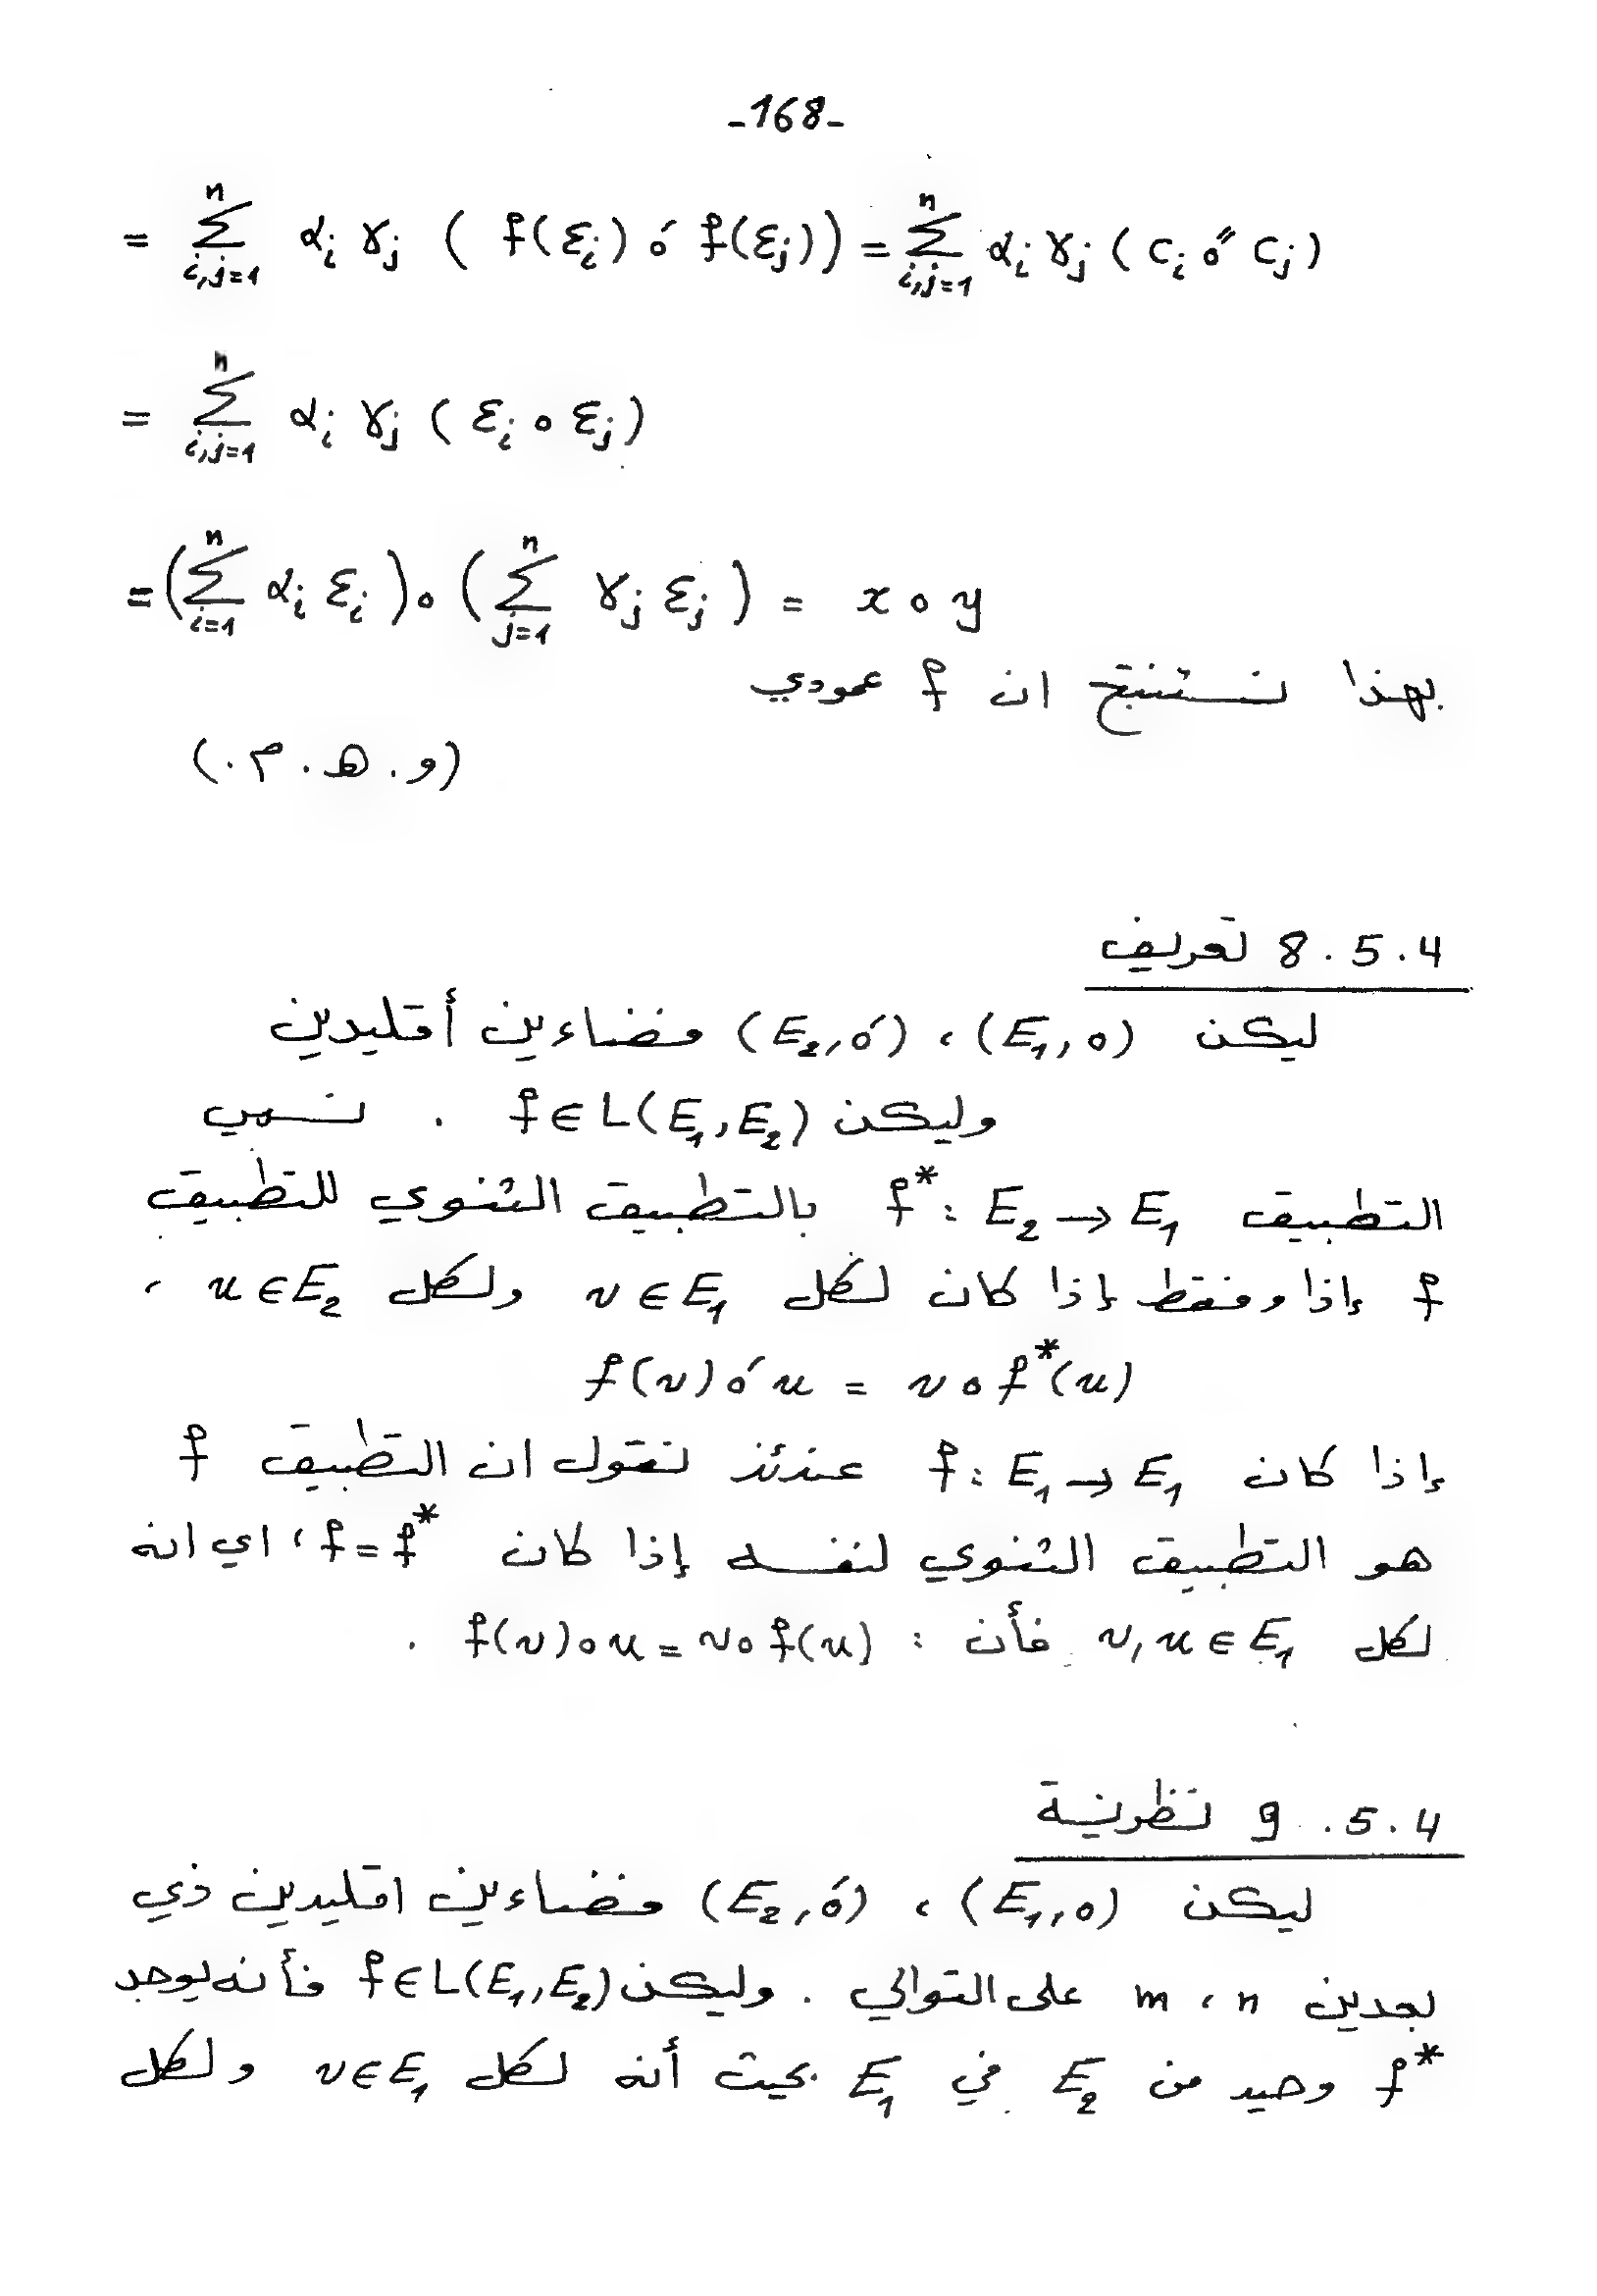 -168-
= \sum_{i,j=1}^{n} α_i γ_j ( f(ε_i) o' f(ε_j)) = \sum_{i,j=1}^{n} α_i γ_j ( c_i o'' c_j )
= \sum_{i,j=1}^{n} α_i γ_j ( ε_i o ε_j )
= ( \sum_{i=1}^{n} α_i ε_i ) o ( \sum_{j=1}^{n} γ_j ε_j ) = x o y
بهذا نستنتج ان f عمودي
(و . هـ . م .)
8 . 5 . 4 تعريف
ليكن (E₁, o) ، (E₂, o') فضاءين أقليدين
وليكن f ∈ L(E₁, E₂) . نسمي
التطبيق f* : E₂ → E₁ بالتطبيق الثنوي للتطبيق
f إذا وفقط إذا كان لكل v ∈ E₁ ولكل u ∈ E₂ ،
f(v) o' u = v o f*(u)
إذا كان f : E₁ → E₁ عندئذ نقول ان التطبيق f
هو التطبيق الثنوي لنفسه إذا كان f = f* ، اي انه
لكل v, u ∈ E₁ فأن : f(v) o u = v o f(u) .
9 . 5 . 4 نظرية
ليكن (E₁, o) ، (E₂, o') فضاءين اقليدين ذي
بعدين n ، m على التوالي . وليكن f ∈ L(E₁, E₂) فأنه يوجد
f* وحيد من E₂ في E₁ بحيث أنه لكل v ∈ E₁ ولكل